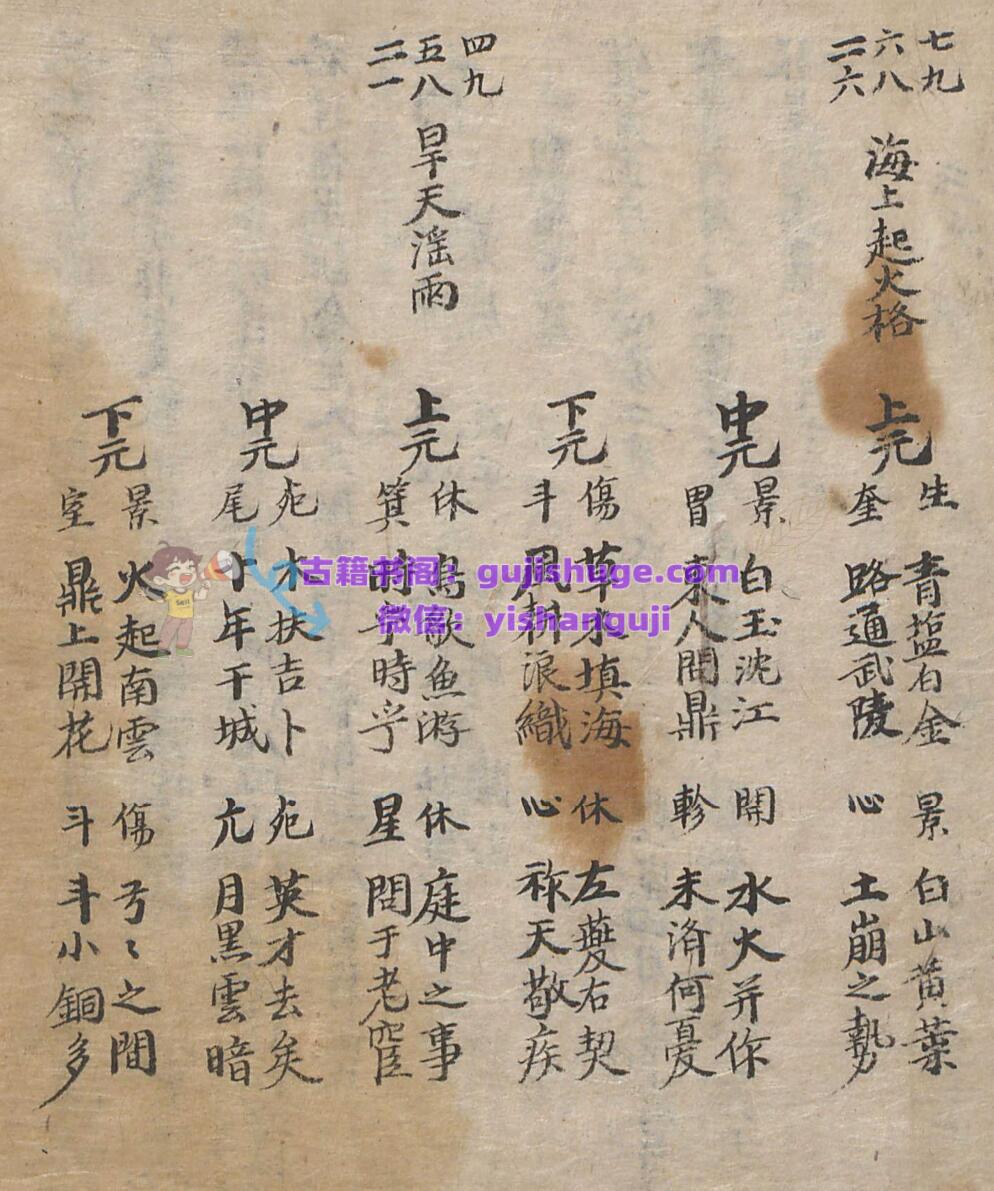 七九
六八
二六
海上起火格
上元
生
奎
青塩白金
路通武陵
景
心
白山黄葉
土崩之勢
中元
景
胃
白玉沈江
末人閒鼎
開
軫
水火并作
未濟何憂
下元
傷
斗
草木填海
風耕浪織
休
心
左夔右契
祚天敬疾
四九
五八
二一
旱天滛雨
上元
休
箕
鳥歌魚游
時乎時乎
休
星
庭中之事
閒于老宦
中元
死
尾
木扶吉卜
十年干城
死
亢
英才去矣
月黑雲暗
下元
景
室
火起南雲
鼎上開花
傷
斗
弓〻之間
斗小銅多
古籍书阁：gujishuge.com
微信：yishanguji